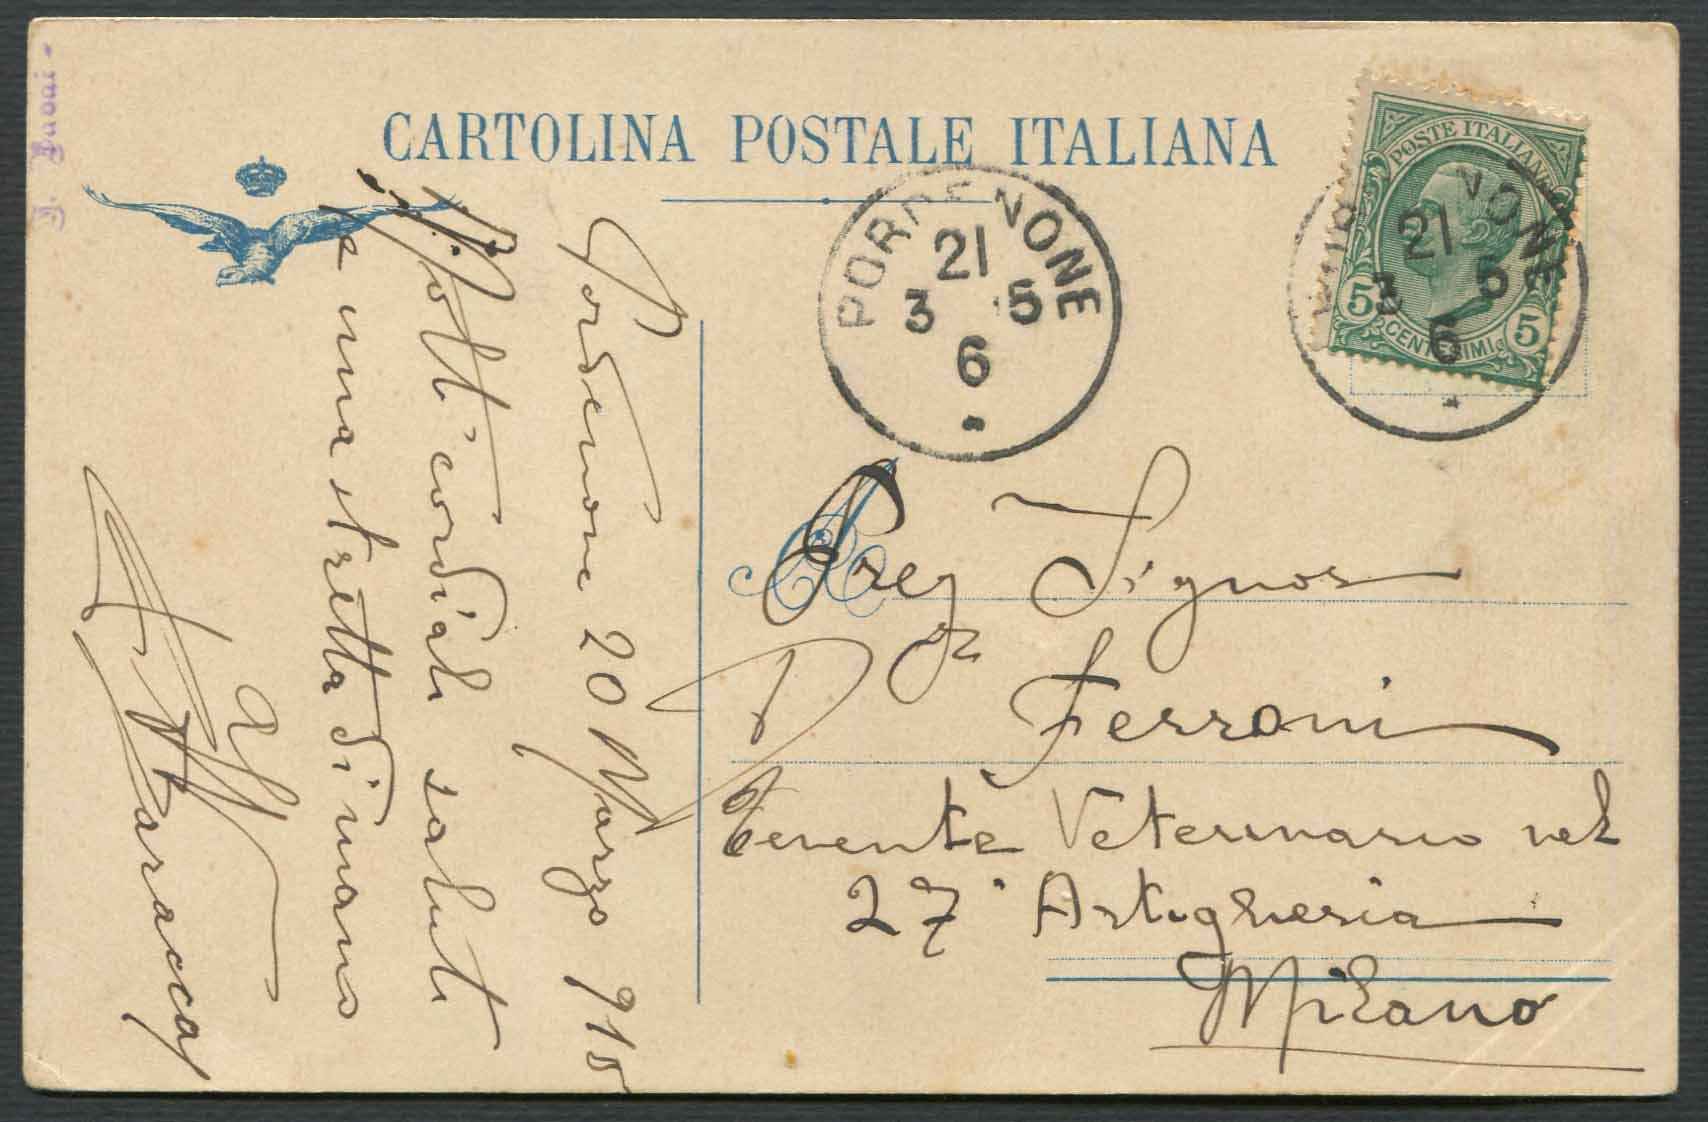 CARTOLINA POSTALE ITALIANA
POSTE ITALIANE
5 CENTESIMI 5
PORDENONE
21
3 5
6
PORDENONE
21
3 5
6
Pordenone 20 Marzo 915
Molti cordiali saluti
e una stretta di mano
Baracca
A
Preg Signor
Ferroni
Tenente Veterinario nel
27° Artiglieria
Milano